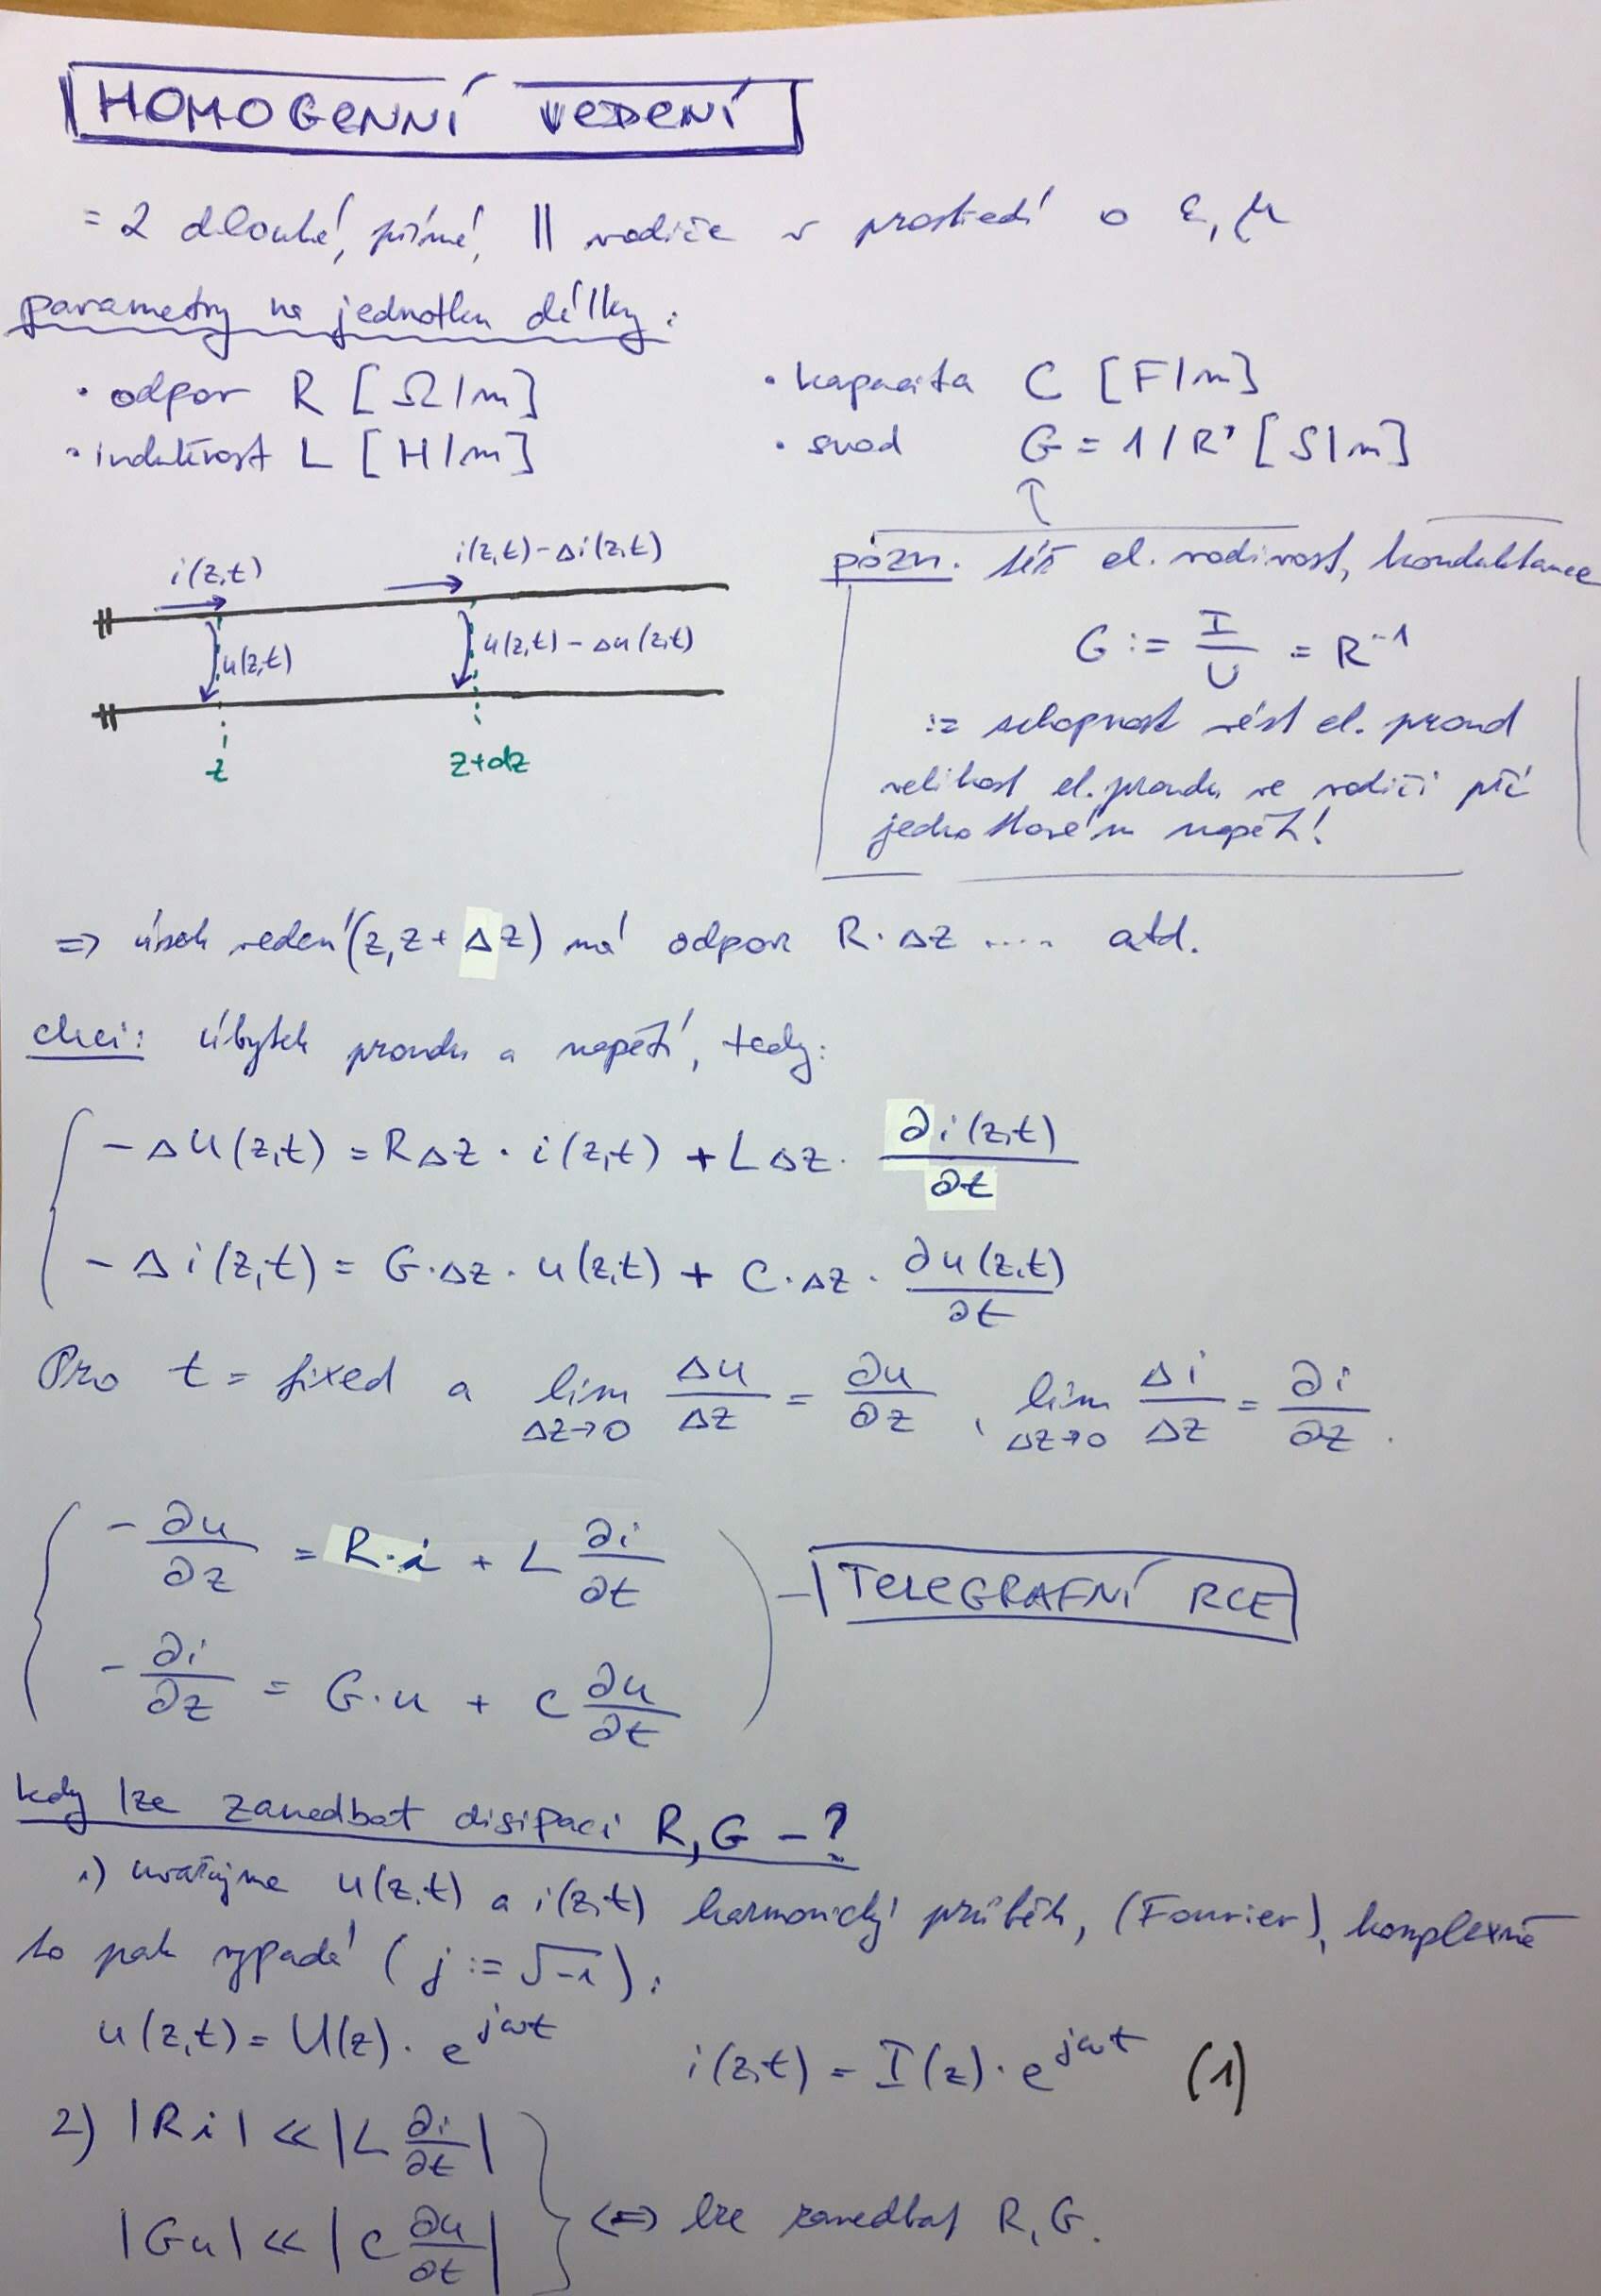 HOMOGENNÍ VEDENÍ
= 2 dlouhé, přímé, || vodiče v prostředí o ε, μ
parametry na jednotku délky:
• odpor R [Ω/m]
• kapacita C [F/m]
• indukčnost L [H/m]
• svod G = 1/R' [S/m]
pozn. též el. vodivost, konduktance
G := I/U = R⁻¹
:= schopnost vést el. proud
velikost el. proudu ve vodiči při
jednotkovém napětí!
i(z,t)
i(z,t) - Δi(z,t)
u(z,t)
u(z,t) - Δu(z,t)
z
z+dz
=> úsek vedení (z, z + Δz) má odpor R·Δz .... atd.
chci: úbytek proudu a napětí, tedy:
-Δu(z,t) = RΔz · i(z,t) + LΔz · ∂i(z,t)/∂t
-Δi(z,t) = G·Δz · u(z,t) + C·Δz · ∂u(z,t)/∂t
Pro t = fixed a lim Δz→0 Δu/Δz = ∂u/∂z, lim Δz→0 Δi/Δz = ∂i/∂z.
-∂u/∂z = R·i + L ∂i/∂t
TELEGRAFNÍ RCE
-∂i/∂z = G·u + C ∂u/∂t
kdy lze zanedbat disipaci R, G -?
1) uvažujme u(z,t) a i(z,t) harmonický průběh, (Fourier), komplexně
to pak vypadá (j := √-1):
u(z,t) = U(z) · e^{jωt} i(z,t) = I(z) · e^{jωt} (1)
2) |Ri| << |L ∂i/∂t|
|Gu| << |C ∂u/∂t|
<=> lze zanedbat R, G.